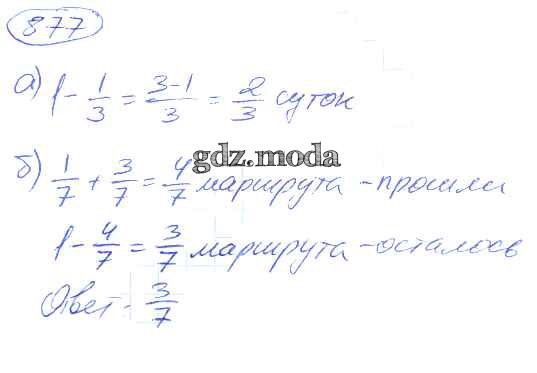 877
а) 1 - 1/3 = 3-1/3 = 2/3 суток
gdz.moda
б) 1/7 + 3/7 = 4/7 маршрута - прошли
1 - 4/7 = 3/7 маршрута - осталось
Ответ - 3/7